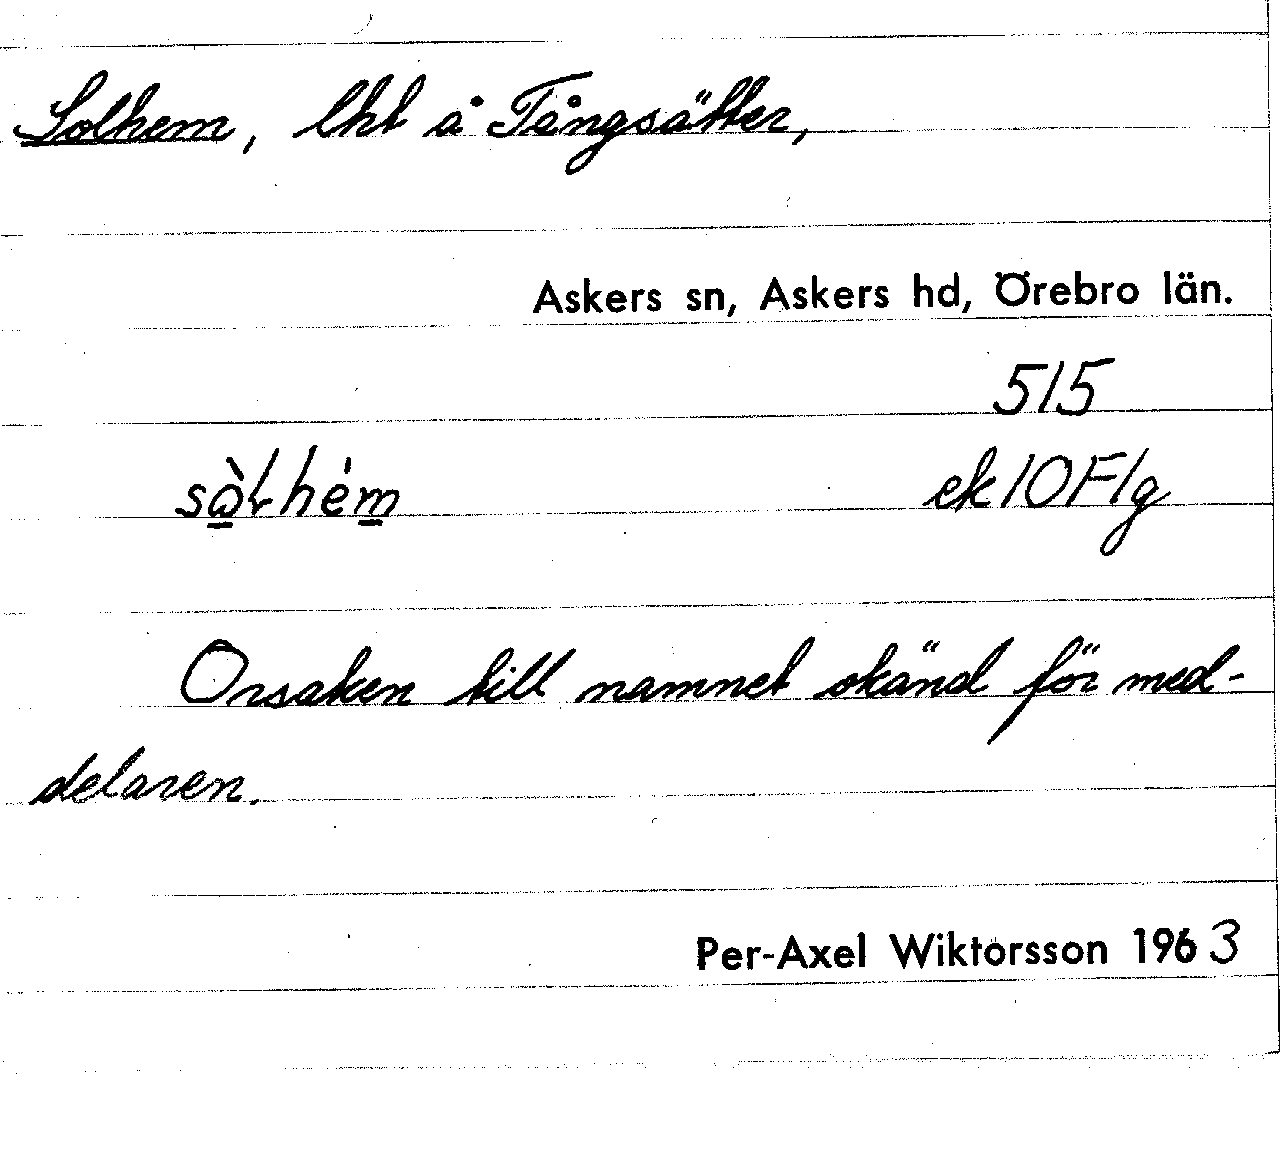 Solhem, lht å Tångsätter,
Askers sn, Askers hd, Örebro län.
515
sò̱lhém̱ ek10F1g
Orsaken till namnet okänd för med-
delaren.
Per-Axel Wiktorsson 1963